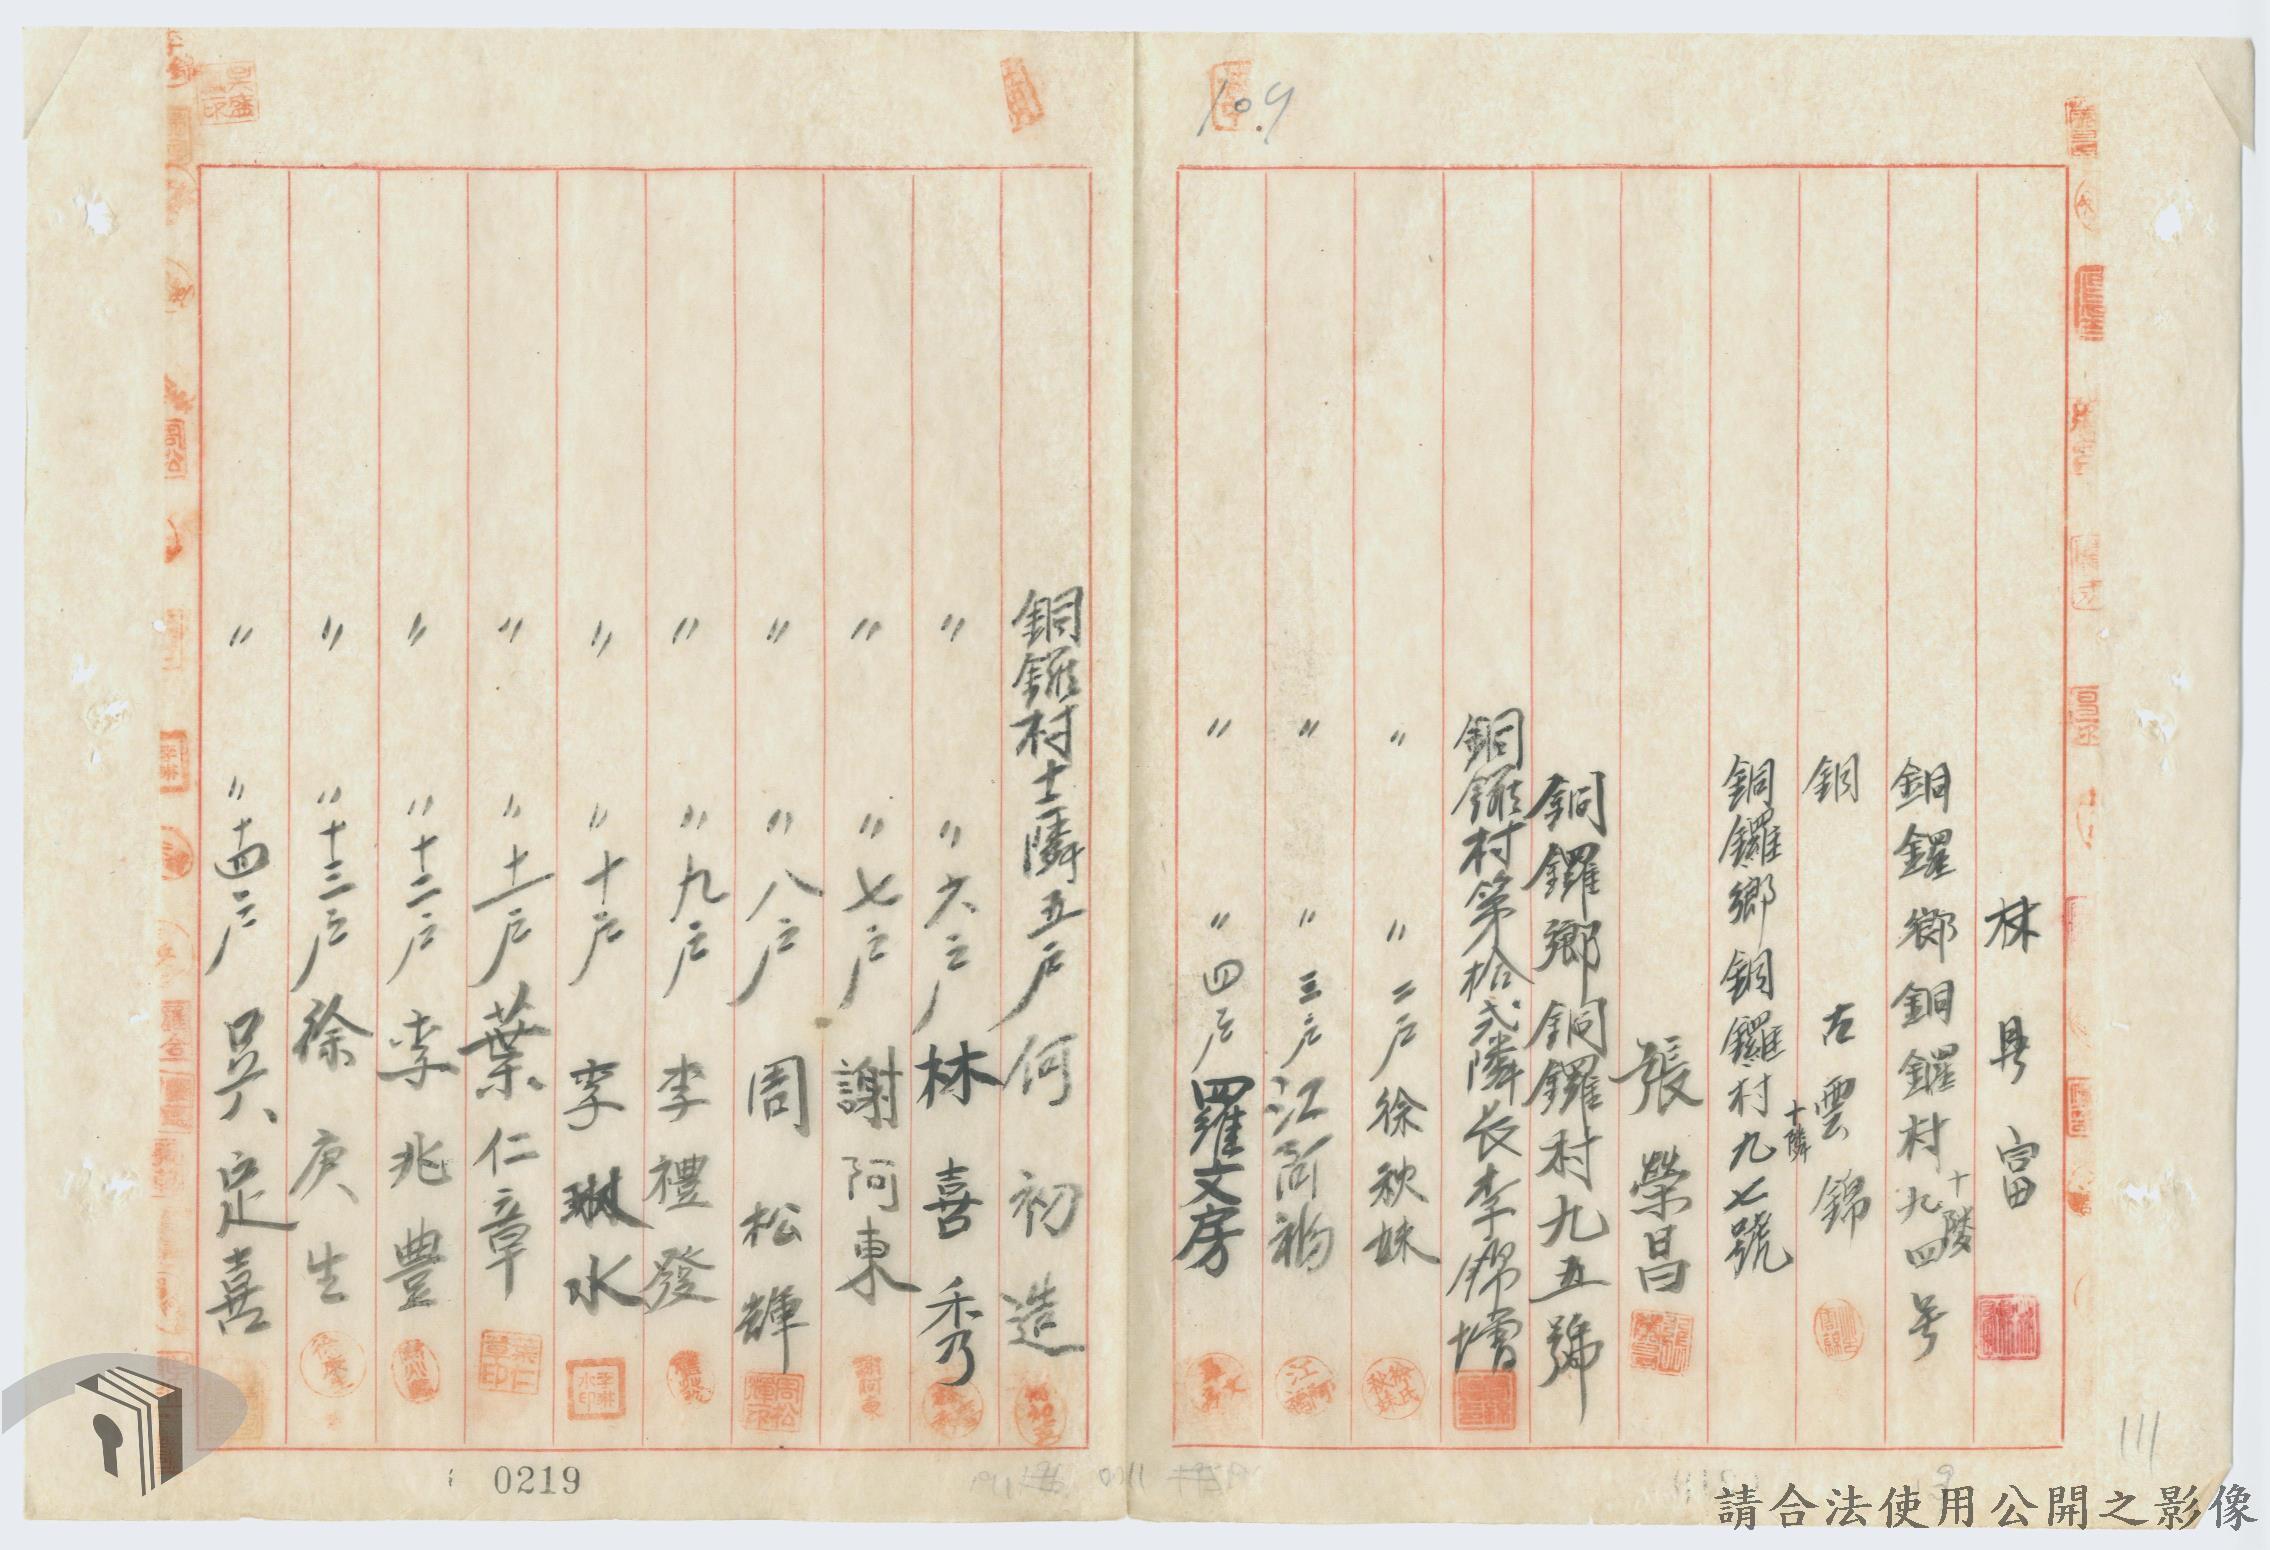 109
林 具 富
銅鑼鄉銅鑼村十陵九四号
銅 古雲錦
銅鑼鄉銅鑼村十隣九七號
張榮昌
銅鑼鄉銅鑼村九五號
銅鑼村第拾弍隣長李錦增
〃 〃 二戶徐秋妹
〃 〃 三戶江阿
〃 〃 四戶羅文房
銅鑼村 隣五戶何初造
〃 〃 六戶林喜秀
〃 〃 七戶 謝阿東
〃 〃 八戶 周松輝
〃 〃 九戶 李禮發
〃 〃 十戶 李琳水
〃 〃 十一戶葉仁章
〃 〃 十二戶李兆豐
〃 〃 十三戶徐庚生
〃 〃 十四戶 吳定喜
0219
111
請合法使用公開之影像